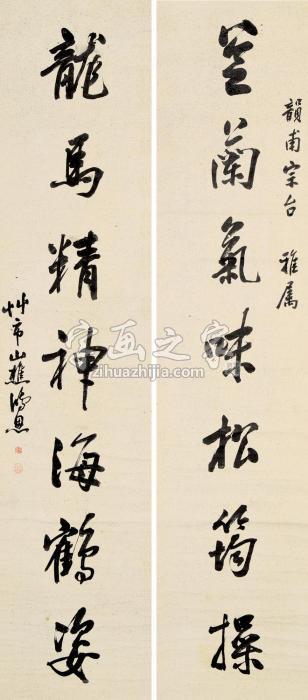 韻甫宗台 雅屬
芝蘭氣味松筠操
龍馬精神海鶴姿
艸市山樵鴻恩
字画之家
zihuazhijia.com